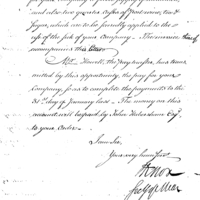 and also two quarter Casks of
sugar, which are to be carefully applied to the
use of the sick of your company. The invoice thereof
accompanies this letter.
Mr. Howell, the Paymaster, has trans
mitted by this opportunity, the pay for your
Company, so as to complete the payments to the
31st day of January last. The money on this
account will be paid by John Habersham Esqr
to your order.
I am Sir,
Your very humble Servt
H Knox
Secy of War